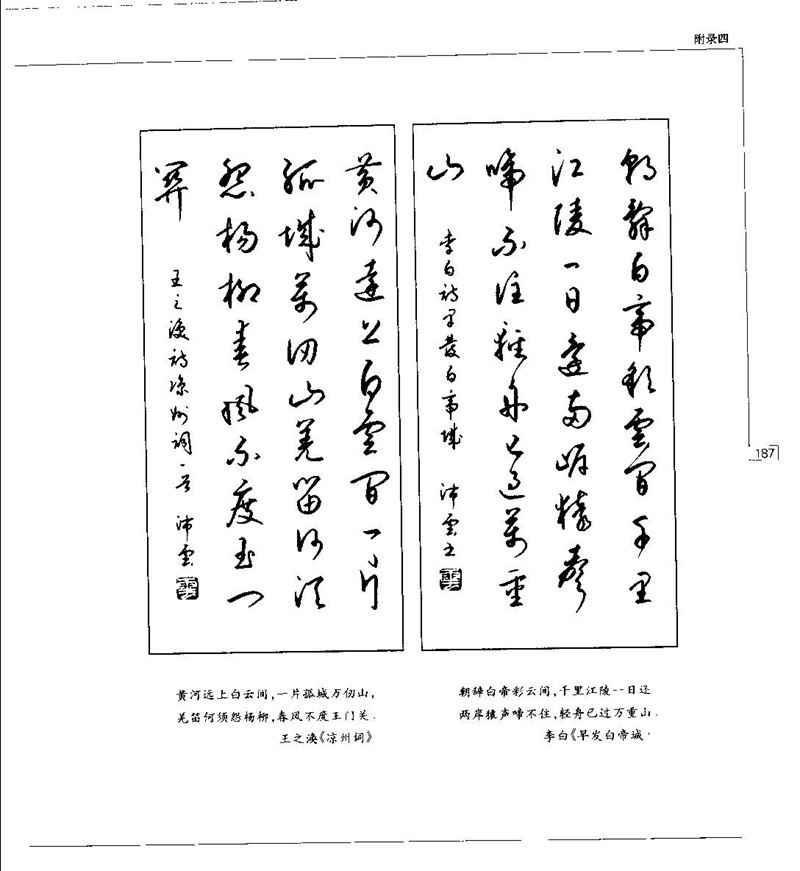 附录四
朝辭白帝彩雲間千里
江陵一日還兩岸猿聲
啼不住輕舟已過萬重
山
李白詩早發白帝城 沛雲书
黄河遠上白雲間一片
孤城萬仞山羌笛何須
怨楊柳春風不度玉门
關
王之渙詩涼州詞一首 沛雲
187
朝辞白帝彩云间,千里江陵一日还
两岸猿声啼不住,轻舟已过万重山.
李白《早发白帝城
黄河远上白云间,一片孤城万仞山,
羌笛何须怨杨柳,春风不度玉门关.
王之涣《凉州词》